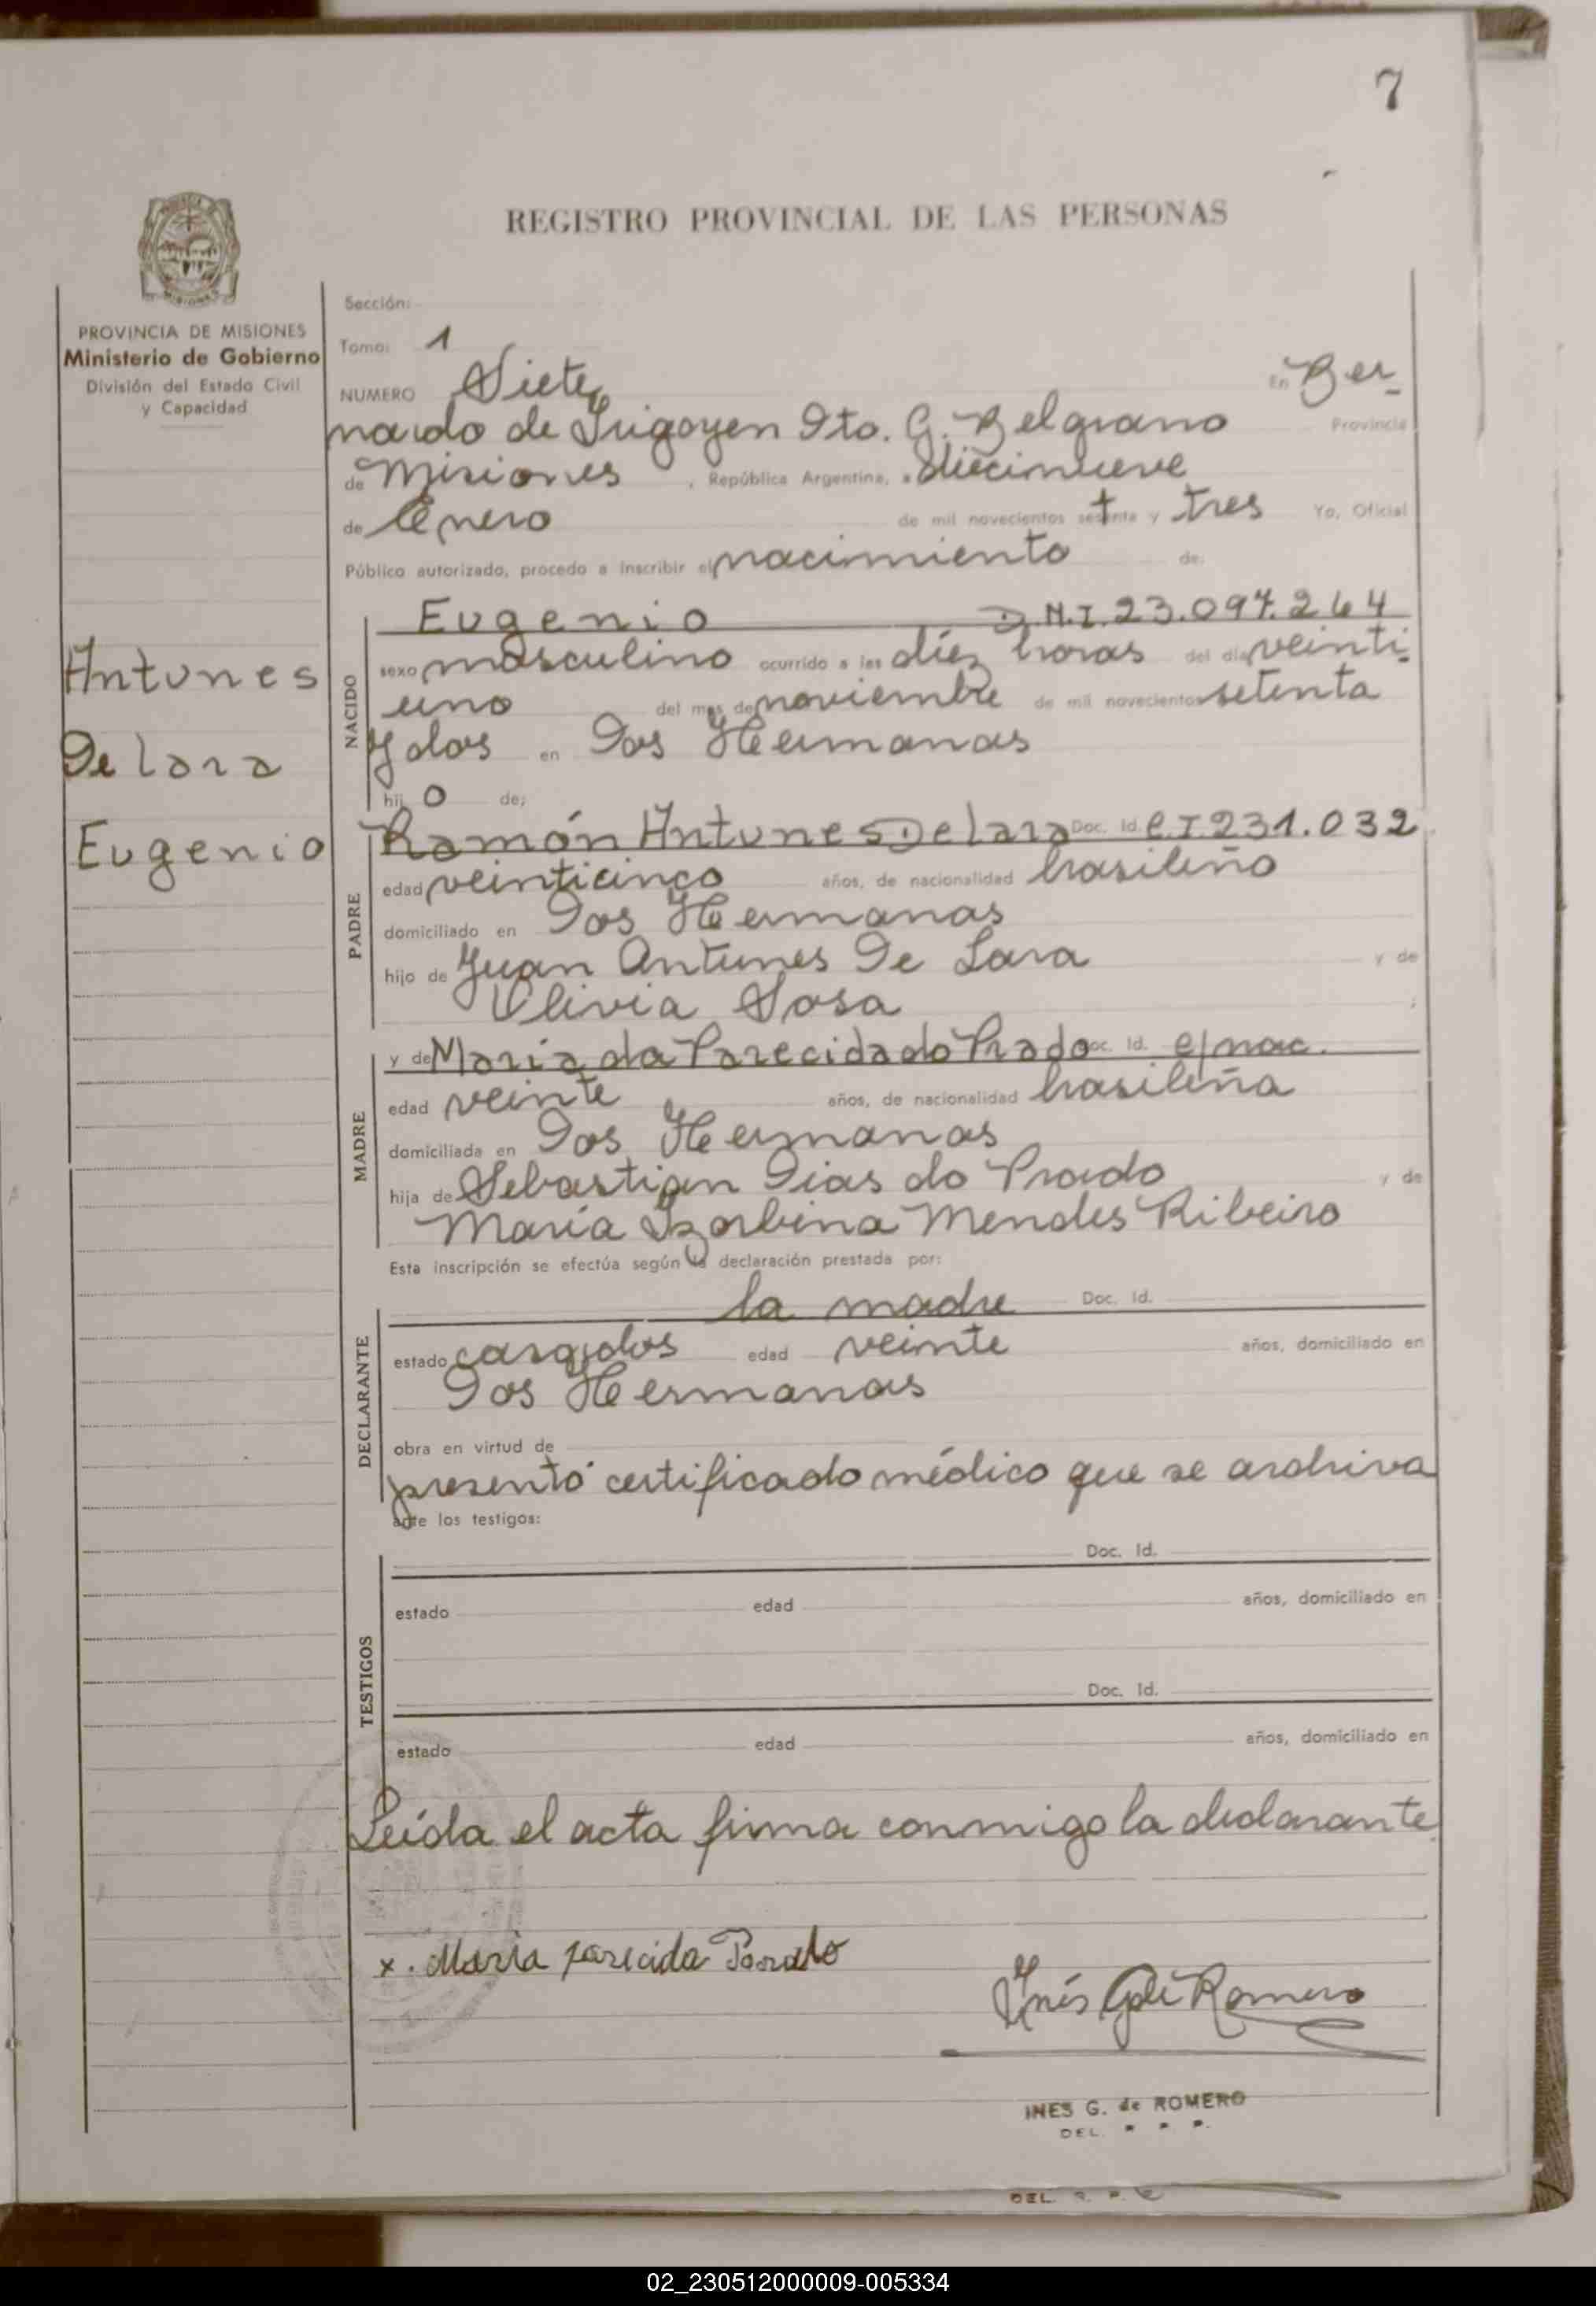 7
REGISTRO PROVINCIAL DE LAS PERSONAS
PROVINCIA DE MISIONES
Ministerio de Gobierno
División del Estado Civil
y Capacidad
Antunes
De lara
Eugenio
Sección:
Tomo: 1
NUMERO Siete En Ber-
nardo de Irigoyen Dto. G. Belgrano Provincia
de Misiones, República Argentina, a diecinueve
de Enero de mil novecientos setenta y tres Yo, Oficial
Público autorizado, procedo a inscribir el nacimiento de:
NACIDO
Eugenio D.N.I. 23.097.264
sexo masculino ocurrido a las diéz horas del día veinti-
uno del mes de noviembre de mil novecientos setenta
y dos en Dos Hermanas
hij o de;
PADRE
Ramón Antunes De lara Doc. Id. C.I 231.032
edad veinticinco años, de nacionalidad brasileño
domiciliado en Dos Hermanas
hijo de Juan Antunes De Lara y de
Olivia Sosa ;
MADRE
y de María da Parecida do Prado Doc. Id. e/nac.
edad veinte años, de nacionalidad brasileña
domiciliada en Dos Hermanas
hija de Sebastian Dias do Prado y de
María Izorbina Mendes Ribeiro
Esta inscripción se efectúa según la declaración prestada por:
DECLARANTE
la madre Doc. Id.
estado casados edad veinte años, domiciliado en
Dos Hermanas
obra en virtud de
presentó certificado médico que se archiva
ante los testigos:
TESTIGOS
Doc. Id.
estado edad años, domiciliado en
Doc. Id.
estado edad años, domiciliado en
Leída el acta firma conmigo la declarante
x. María parecida Prado
Inés G de Romero
INES G. de ROMERO
DEL. R. P. P.
DEL. R. P.
02_230512000009-005334